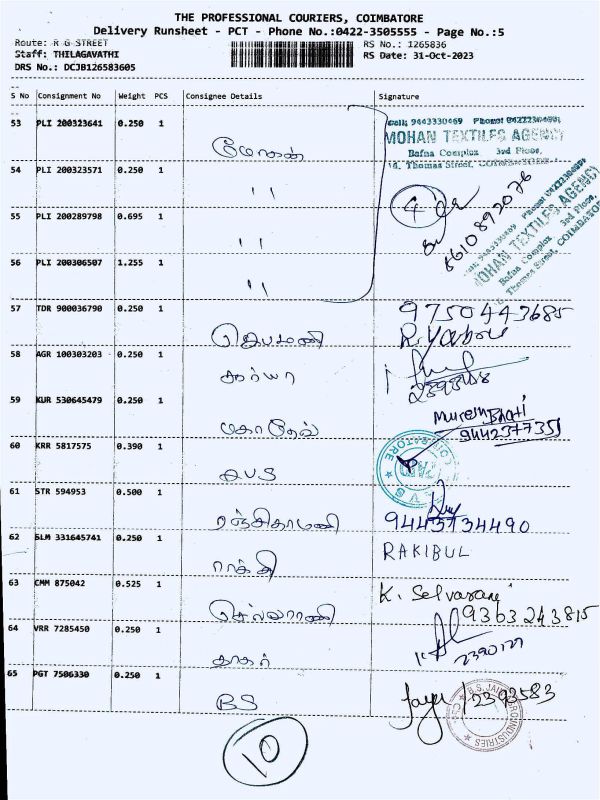 THE PROFESSIONAL COURIERS, COIMBATORE
Delivery Runsheet - PCT - Phone No.:0422-3505555 - Page No.:5
Route: R G STREET
RS No.: 1265836
Staff: THILAGAVATHI
RS Date: 31-Oct-2023
DRS No.: DCJB126583605
S No Consignment No Weight PCS Consignee Details Signature
53 PLI 200323641 0.250 1
MOHAN TEXTILES AGENCY
Bafna Complex 3rd Floor,
Thomas Street, COIMBATORE
மோகன்
54 PLI 200323571 0.250 1
''
4
8610892026
55 PLI 200289798 0.695 1
''
56 PLI 200306507 1.255 1
''
57 TDR 900036790 0.250 1
ஜெபமணி
9750443685
58 AGR 100303203 0.250 1
சூர்யா
59 KUR 530645479 0.250 1
மகாதேவ்
9442377351
60 KRR 5817575 0.390 1
61 STR 594953 0.500 1
9443734490
62 SLM 331645741 0.250 1
RAKIBUL
ராக்கி
63 CMM 875042 0.525 1
K. Selvarani
9363243815
செல்வராணி
64 VRR 7285450 0.250 1
65 PGT 7506330 0.250 1
BS
2393583
10